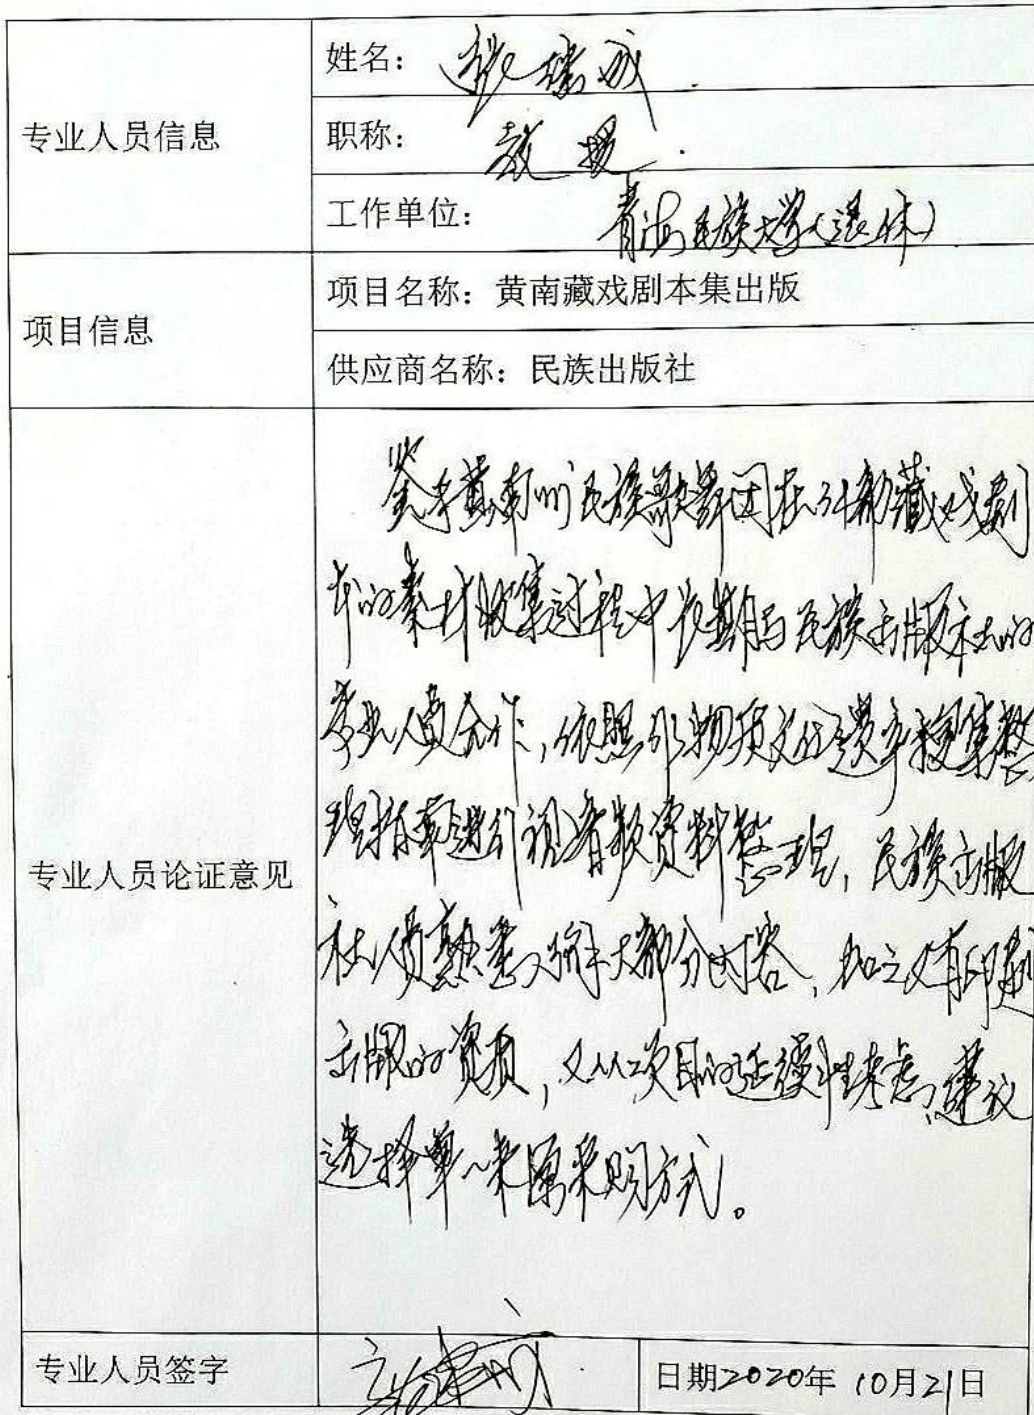 专业人员信息
姓名：张
职称：教授
工作单位：青海民族大学（退休）
项目信息
项目名称：黄南藏戏剧本集出版
供应商名称：民族出版社
专业人员论证意见
鉴于黄南州民族歌舞团在31部藏戏剧
本的素材收集过程中长期与民族出版社的
专业人员合作，依照非物质文化遗产搜集整
理指南进行视音频资料整理，民族出版
社人员熟悉了解大部分内容，加之又有印刷
出版的资质，又从项目的延续性考虑，建议
选择单一来源采购方式。
专业人员签字
日期2020年10月21日